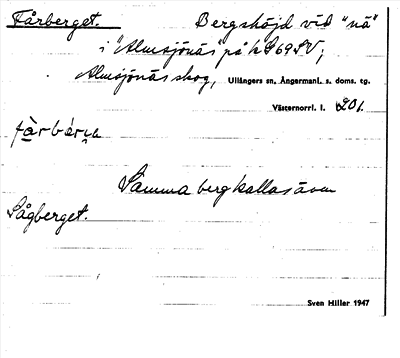 Fårberget. Bergshöjd vid "nä"
i "Almsjönäs" på k S 69 SV;
Almsjönäs skog, Ullångers sn. Ångermanl. s. doms. tg.
Västernorrl. l. 201.
Samma berg kallas även
Sågberget.
Sven Hiller 1947